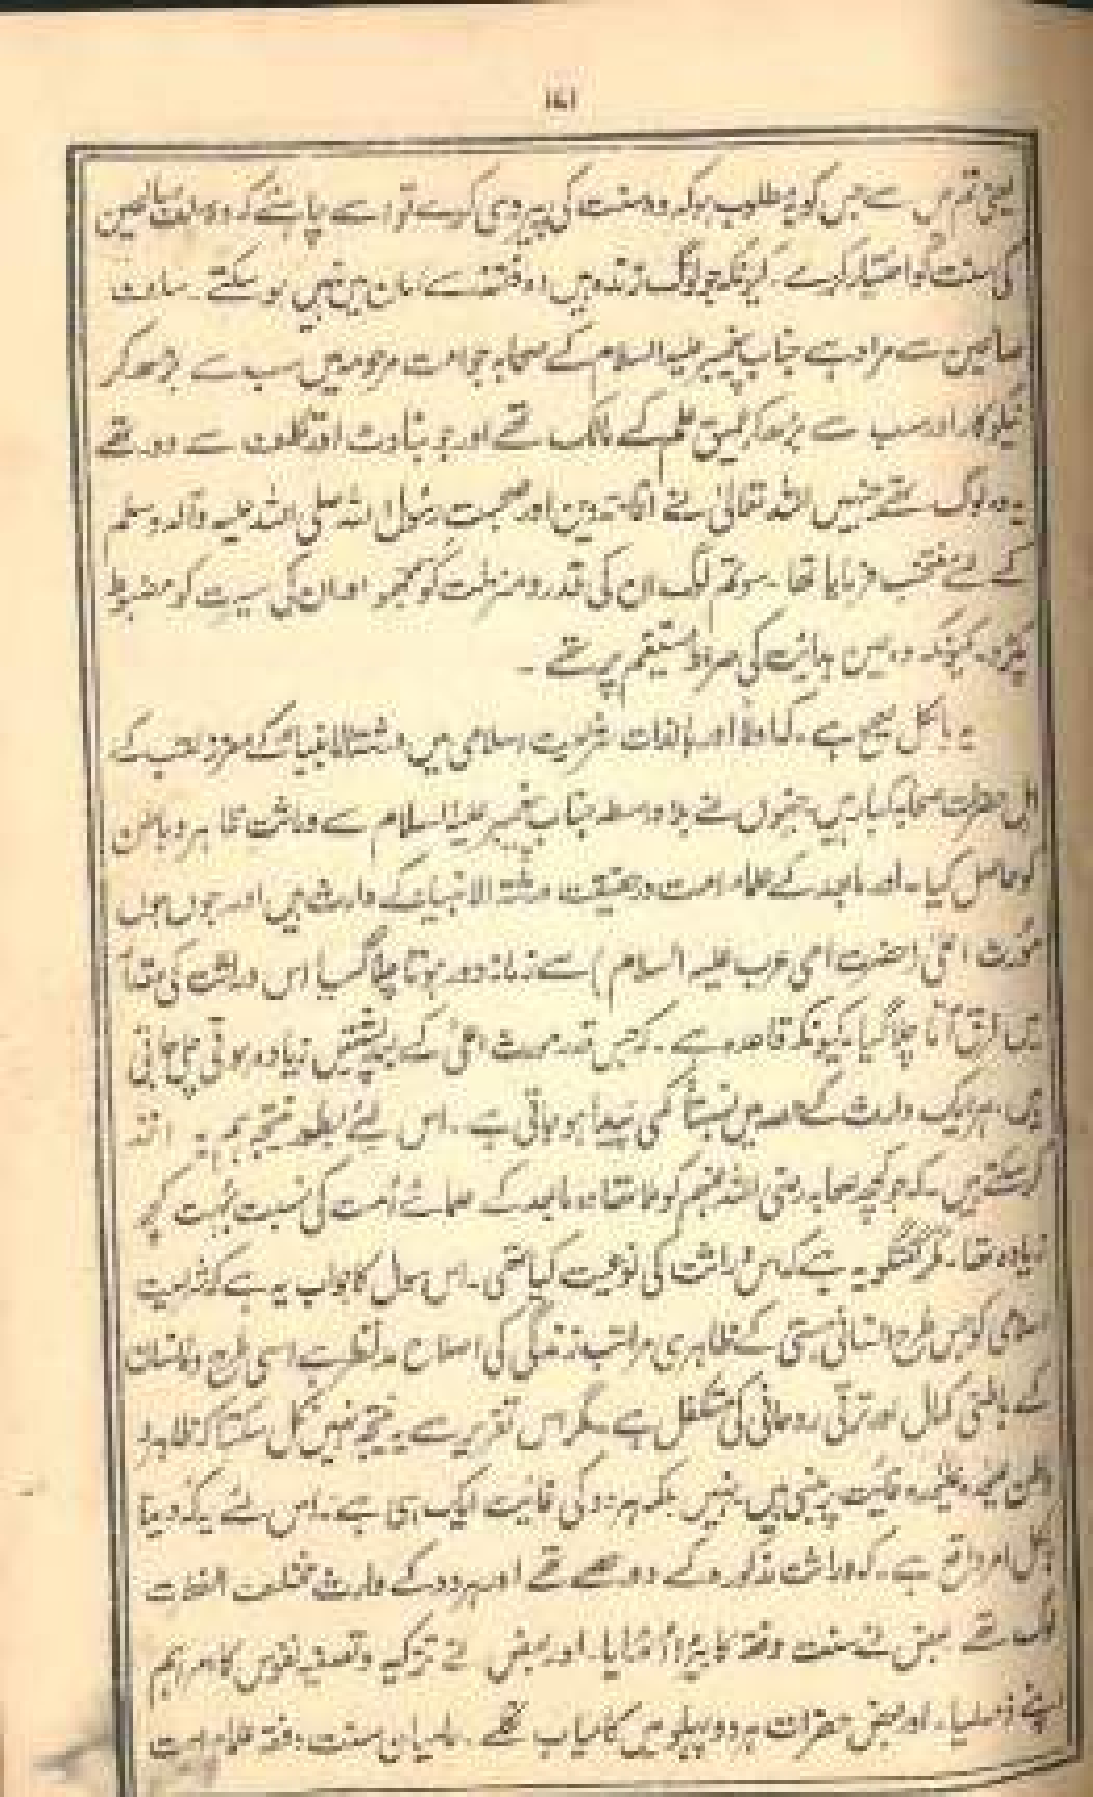 ۱۶۱
یعنی تم میں سے جس کو یہ مطلوب ہو کہ وہ سنت کی پیروی کرے تو اسے چاہئے کہ وہ سلف صالحین
کی سنت کو اختیار کرے۔ کیونکہ جو لوگ زندہ ہیں وہ فتنہ سے امان میں نہیں ہو سکتے۔ سلف
صالحین سے مراد ہے جناب پیغمبر علیہ السلام کے صحابہ جو امت مرحومہ میں سب سے بڑھ کر
نیکو کار اور سب سے بڑھ کر عمیق علم کے مالک تھے اور جو بناوٹ اور تکلف سے دور تھے
یہ وہ لوگ تھے جنہیں اللہ تعالیٰ نے اقامت دین اور صحبت رسول اللہ صلی اللہ علیہ وآلہ وسلم
کے لئے منتخب فرمایا تھا۔ سو تم لوگ ان کی قدر و منزلت کو سمجھو اور ان کی سیرت کو مضبوط
پکڑو۔ کیونکہ وہ عین ہدایت کی صراط مستقیم پر تھے۔
یہ بالکل صحیح ہے۔ کہ اولاً اور بالذات شریعت اسلامی میں ورثۃ الانبیاء کے معزز لقب کے
اہل حضرات صحابہ کبار ہیں جنہوں نے بلا واسطہ جناب پیغمبر علیہ السلام سے وراثت ظاہر و باطن
کو حاصل کیا۔ اور مابعد کے علماء امت درحقیقت ورثۃ الانبیاء کے وارث ہیں اور جوں جوں
مورث اعلیٰ (حضرت امی عرب علیہ السلام) سے زمانہ دور ہوتا چلا گیا اس وراثت کی مقدار
میں فرق آتا چلا گیا۔ کیونکہ قاعدہ ہے۔ کہ جس قدر مورث اعلیٰ کے بعد پشتیں زیادہ ہوتی چلی جاتی
ہیں۔ ہر ایک وارث کے حصہ میں نسبتاً کمی پیدا ہو جاتی ہے۔ اس لئے بطور نتیجہ ہم یہ اخذ
کر سکتے ہیں۔ کہ جو کچھ صحابہ رضی اللہ عنہم کو ملا تھا وہ مابعد کے علمائے امت کی نسبت بہت کچھ
زیادہ تھا۔ مگر گفتگو یہ ہے کہ اس وراثت کی نوعیت کیا تھی۔ اس سوال کا جواب یہ ہے کہ شریعت
اسلامی کو جس طرح انسانی ہستی کے ظاہری مراتب زندگی کی اصلاح مد نظر ہے اسی طرح وہ انسان
کے باطنی کمال اور ترقی روحانی کی متکفل ہے۔ مگر اس تقریر سے یہ نتیجہ نہیں نکل سکتا کہ ظاہر و
باطن علیحدہ علیحدہ غایت پر مبنی ہیں۔ نہیں بلکہ ہر دو کی غایت ایک ہی ہے۔ اس لئے یہ کہہ دینا
بالکل امر واقع ہے۔ کہ وراثت مذکورہ کے دو حصے تھے اور ہر دو کے وارث مختلف
لوگ تھے بعض نے سنت و فقہ کا بیڑا اٹھایا۔ اور بعض نے تزکیہ و تصفیہ نفوس کا امر اہم
اپنے ذمہ لیا۔ اور بعض حضرات ہر دو پہلو میں کامیاب نکلے۔ حامیان سنت و فقہ علماء امت